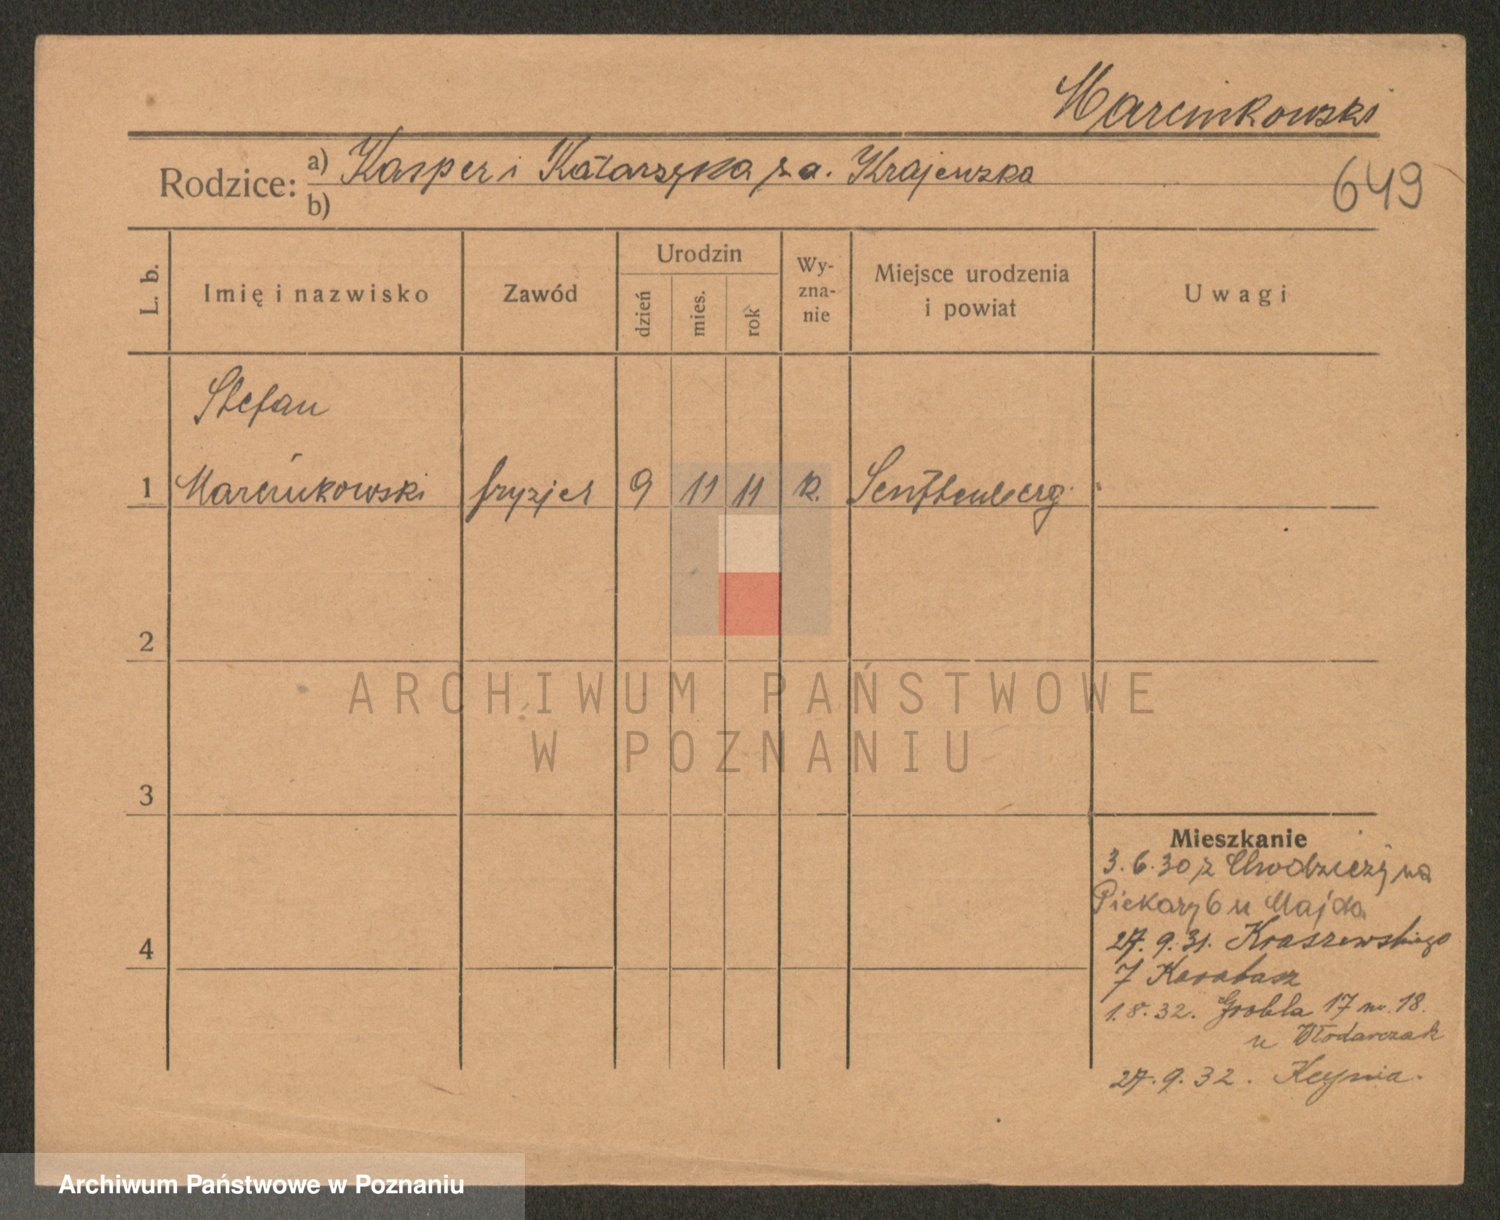 Marcinkowski
Rodzice: a) Kasper i Katarzyna z d. Krajewska
b)
649
L. b.
Imię i nazwisko
Zawód
Urodzin
dzień
mies.
rok
Wy-
zna-
nie
Miejsce urodzenia
i powiat
Uwagi
Stefan
1 Marcinkowski fryzjer 9 11 11 k. Senftenberg
2
3
4
ARCHIWUM PAŃSTWOWE
W POZNANIU
Mieszkanie
3.6.30 z Chodzieży na
Piekary 6 u Majda
27.9.31. Kraszewskiego
7 Karabasz
1.8.32. Grobla 17 m. 18.
u Włodarczak
27.9.32. Kcynia.
Archiwum Państwowe w Poznaniu